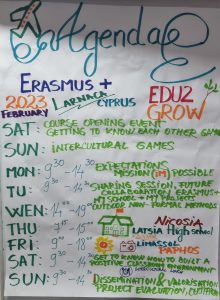 Agenda
ERASMUS +
2023 FEBRUARY LARNACA CYPRUS EDU2 GROW
SAT: COURSE OPENING EVENT-
GETTING TO KNOW EACH OTHER GAMES
SUN: INTERCULTURAL GAMES
MON: 9:30 - 14:30 EXPECTATIONS
MISSION (IM) POSSIBLE
TU: 9:30 - 14:30 SHARING SESSION, FUTURE
COLLABORATION, ERASMUS+
MY SCHOOL + MY PROJECTS
WEN: OUTDOOR NON-FORMAL METHODS
THU: 9:15 - 15 NICOSIA
LATSIA High school
FRI: 9:00 - 18:00 LIMASSOL
PAPHOS
SAT: 9:30 - 14:30 GET TO KNOW HOW TO BUILD A
POSITIVE CLASSROOM ENVIRONMENT
SUN: 9:30 - 14:30 DISSEMINATION & VALORISATION
PROJECT EVALUATION, CERTIF